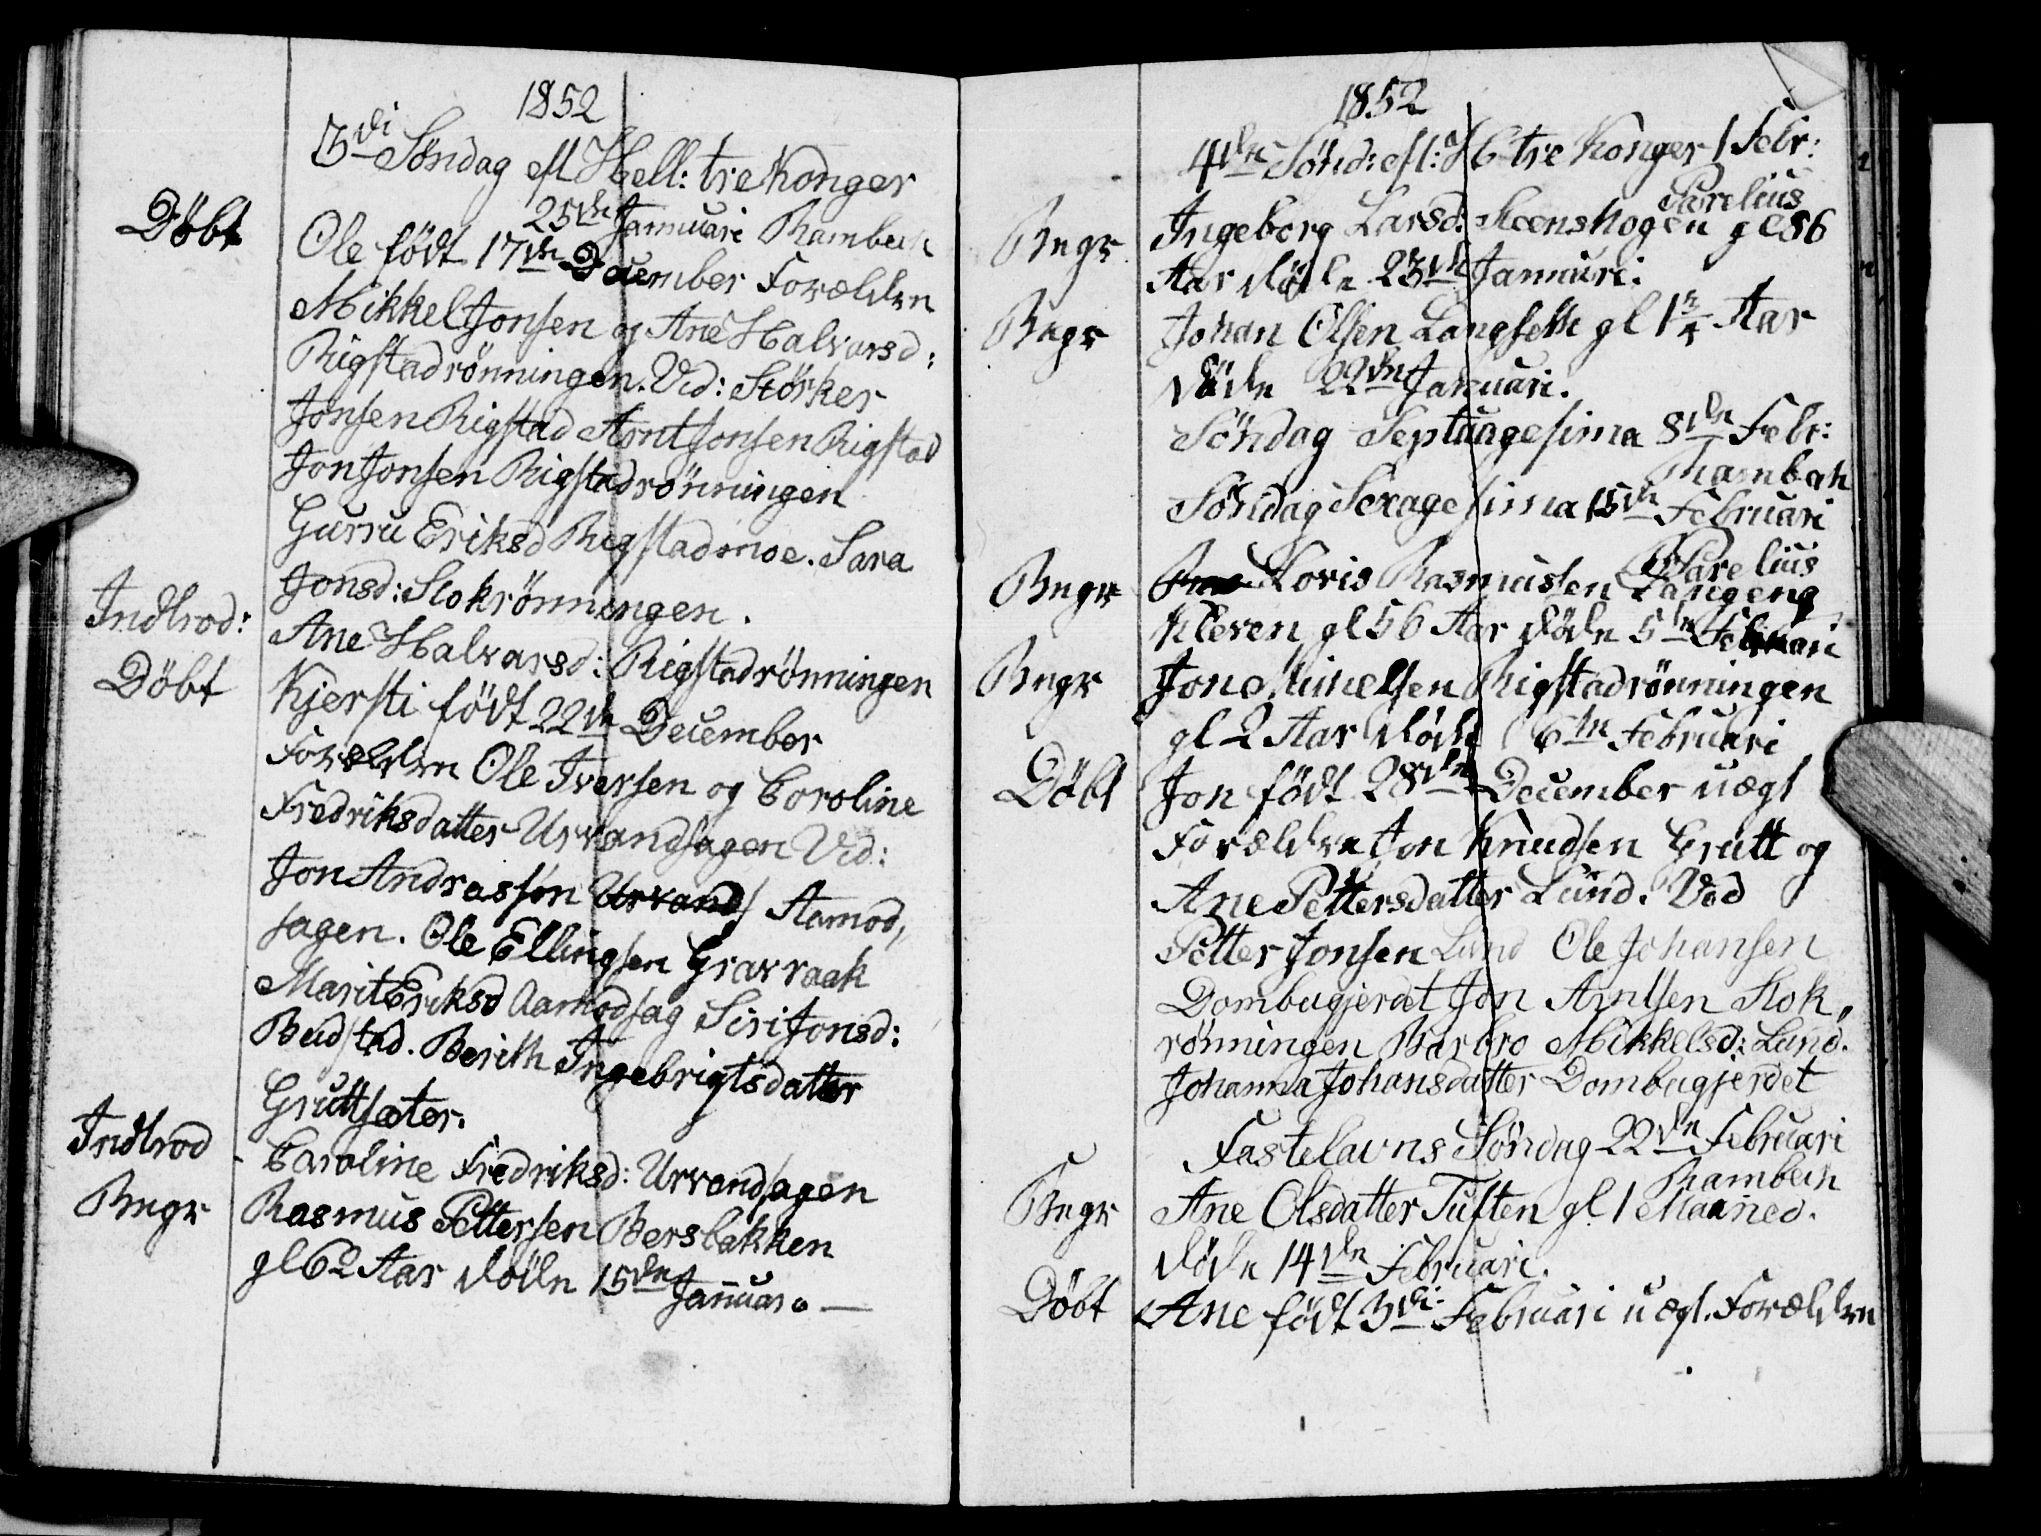 1852
3di Søndag eft Hell: tre Konger
25de Januari Rambech
Døbt Ole født 17de December Forældre
Mikkel Jonsen og Ane Halvorsd:
Rigstadrønningen. Vid: Størker
Jonsen Rigstad Arnt Jonsen Rigstad
Jon Jonsen Rigstadrønningen
Gurru Eriksd Rigstadmoe. Sara
Jonsd: Stokrønningen.
Indlrod: Ane Halvarsd: Rigstadrønningen
Døbt Kjersti født 22de December
Forældre Ole Iversen og Caroline
Fredriksdatter Urvandsagen Vid:
Jon Andrassøn Urvands Aamod,
sagen. Ole Ellingsen Gravraak
Marit Eriksd Aamodsag Siri Jonsd:
Budstad. Berith Ingebrigtsdatter
Gruttsæter.
Indlrod Caroline Fredriksd: Urvandsagen
Begr Rasmus Pettersen Bersbakken
gl 62 Aar døde 15de Januar.
1852
4de Sønd: eft: H b tre Konger 1 Febr:
Parelius
Begr Ingeborg Larsd: Steenshogen gl 86
Aar døde 23de Januari.
Begr Johan Olsen Langseth gl 1 3/4 Aar
døde 22de Januari.
Søndag Septuagesima 8de Febr:
Rambech
Søndag Sexagesima 15de Februari
Parelius
Begr Loris Rasmussen Langeng
Kleven gl 56 Aar døde 5te Februari
Begr Jon Mikelsen Rigstadrønningen
gl 2 Aar døde 6te Februari
Døbt Jon født 28de December uægt
Forældre Jon Knudsen Grutt og
Ane Pettersdatter Lund. Ved
Petter Jonsen Lund Ole Johansen
Dombugjerdet Jon Arntsen Stok,
rønningen Barbro Mikkelsd: Lund.
Johanna Johansdatter Dombugjerdet
Fastelavns Søndag 22de Februari
Rambech
Begr Ane Olsdatter Tuften gl. 1 Maaned.
døde 14de Februari.
Døbt Ane født 3di Februari uægt. Forældre